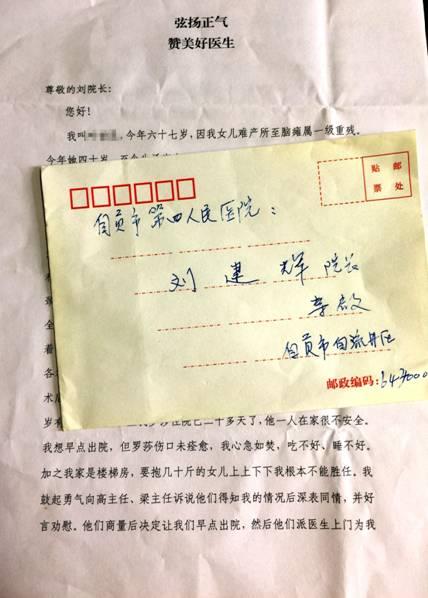 弦扬正气
赞美好医生
尊敬的刘院长：
您好！
我叫 今年六十七岁，因我女儿难产所至脑瘫属一级重残。
今年她四十岁，
贴 邮
票 处
自贡市第四人民医院：
刘建辉 院长
亲启
自贡市自流井区
邮政编码：643000
全
着
各
术
岁 住院已二十多天了，他一人在家很不安全。
我想早点出院，但罗莎伤口未痊愈，我心急如焚，吃不好、睡不好。
加之我家是楼梯房，要抱几十斤的女儿上上下下我根本不能胜任。我
鼓起勇气向高主任、梁主任诉说他们得知我的情况后深表同情，并好
言劝慰。他们商量后决定让我们早点出院，然后他们派医生上门为我